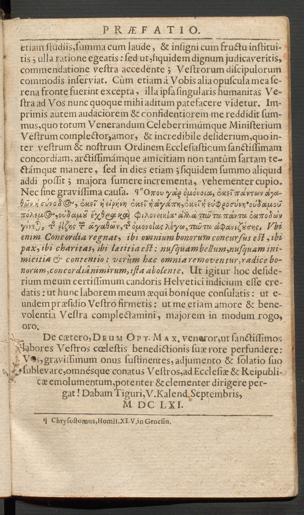 PRÆFATIO.
etiam studiis, summa cum laude, & insigni cum fructu institui-
tis; ulla ratione egeatis: sed ut, siquidem dignum judicaveritis,
commendatione vestra accedente; Vestrorum discipulorum
commodis inserviat. Cùm etiam à Vobis alia opuscula mea se-
rena fronte fuerint excepta, illa ipsa singularis humanitas Ve-
stra ad Vos nunc quoque mihi aditum patefacere videtur. Im-
primis autem audaciorem & confidentiorem me reddidit sum-
mus, quo totum Venerandum Celeberrimúmque Ministerium
Vestrum complector, amor, & incredibile desiderium, quo in-
ter vestrum & nostrum Ordinem Ecclesiasticum sanctissimam
concordiam, arctissimámque amicitiam non tantùm sartam te-
ctámque manere, sed in dies etiam; siquidem summo aliquid
addi possit; majora sumere incrementa, vehementer cupio.
Nec sine gravissima causa. ¶ Ὅπου γὰρ ὁμόνοια, ἐκεῖ πάντων ἀγα-
θῶν ἐκεῖ ἡ εἰρήνη ἐκεῖ ἡ ἀγάπη, ἐκεῖ ἡ εὐφροσύνη· οὐδαμοῦ
Ubi
enim Concordia regnat, ibi omnium bonorum concursus est, ibi
pax, ibi charitas, ibi lætitia est: nusquam bellum, nusquam ini-
micitia & contentio: verùm hæc omnia removentur, radice bo-
norum, concordiâ nimirum, ista abolente. Ut igitur hoc deside-
rium meum certissimum candoris Helvetici indicium esse cre-
datis: ut hunc laborem meum æqui boníque consulatis: ut e-
undem præsidio Vestro firmetis: ut me etiam amore & bene-
volentia Vestra complectamini, majorem in modum rogo,
oro.
De cætero, DEUM OPT. MAX, veneror, ut sanctissimos
labores Vestros cœlestis benedictionis suæ rore perfundere:
Vos, gravissimum onus sustinentes, adjumento & solatio suo
sublevare, omnésque conatus Vestros, ad Ecclesiæ & Reipubli-
cæ emolumentum, potenter & clementer dirigere per-
gat! Dabam Tiguri, V. Kalend. Septembris,
M DC LXI.
¶ Chrysostomus, Homil. XLV, in Genesin.